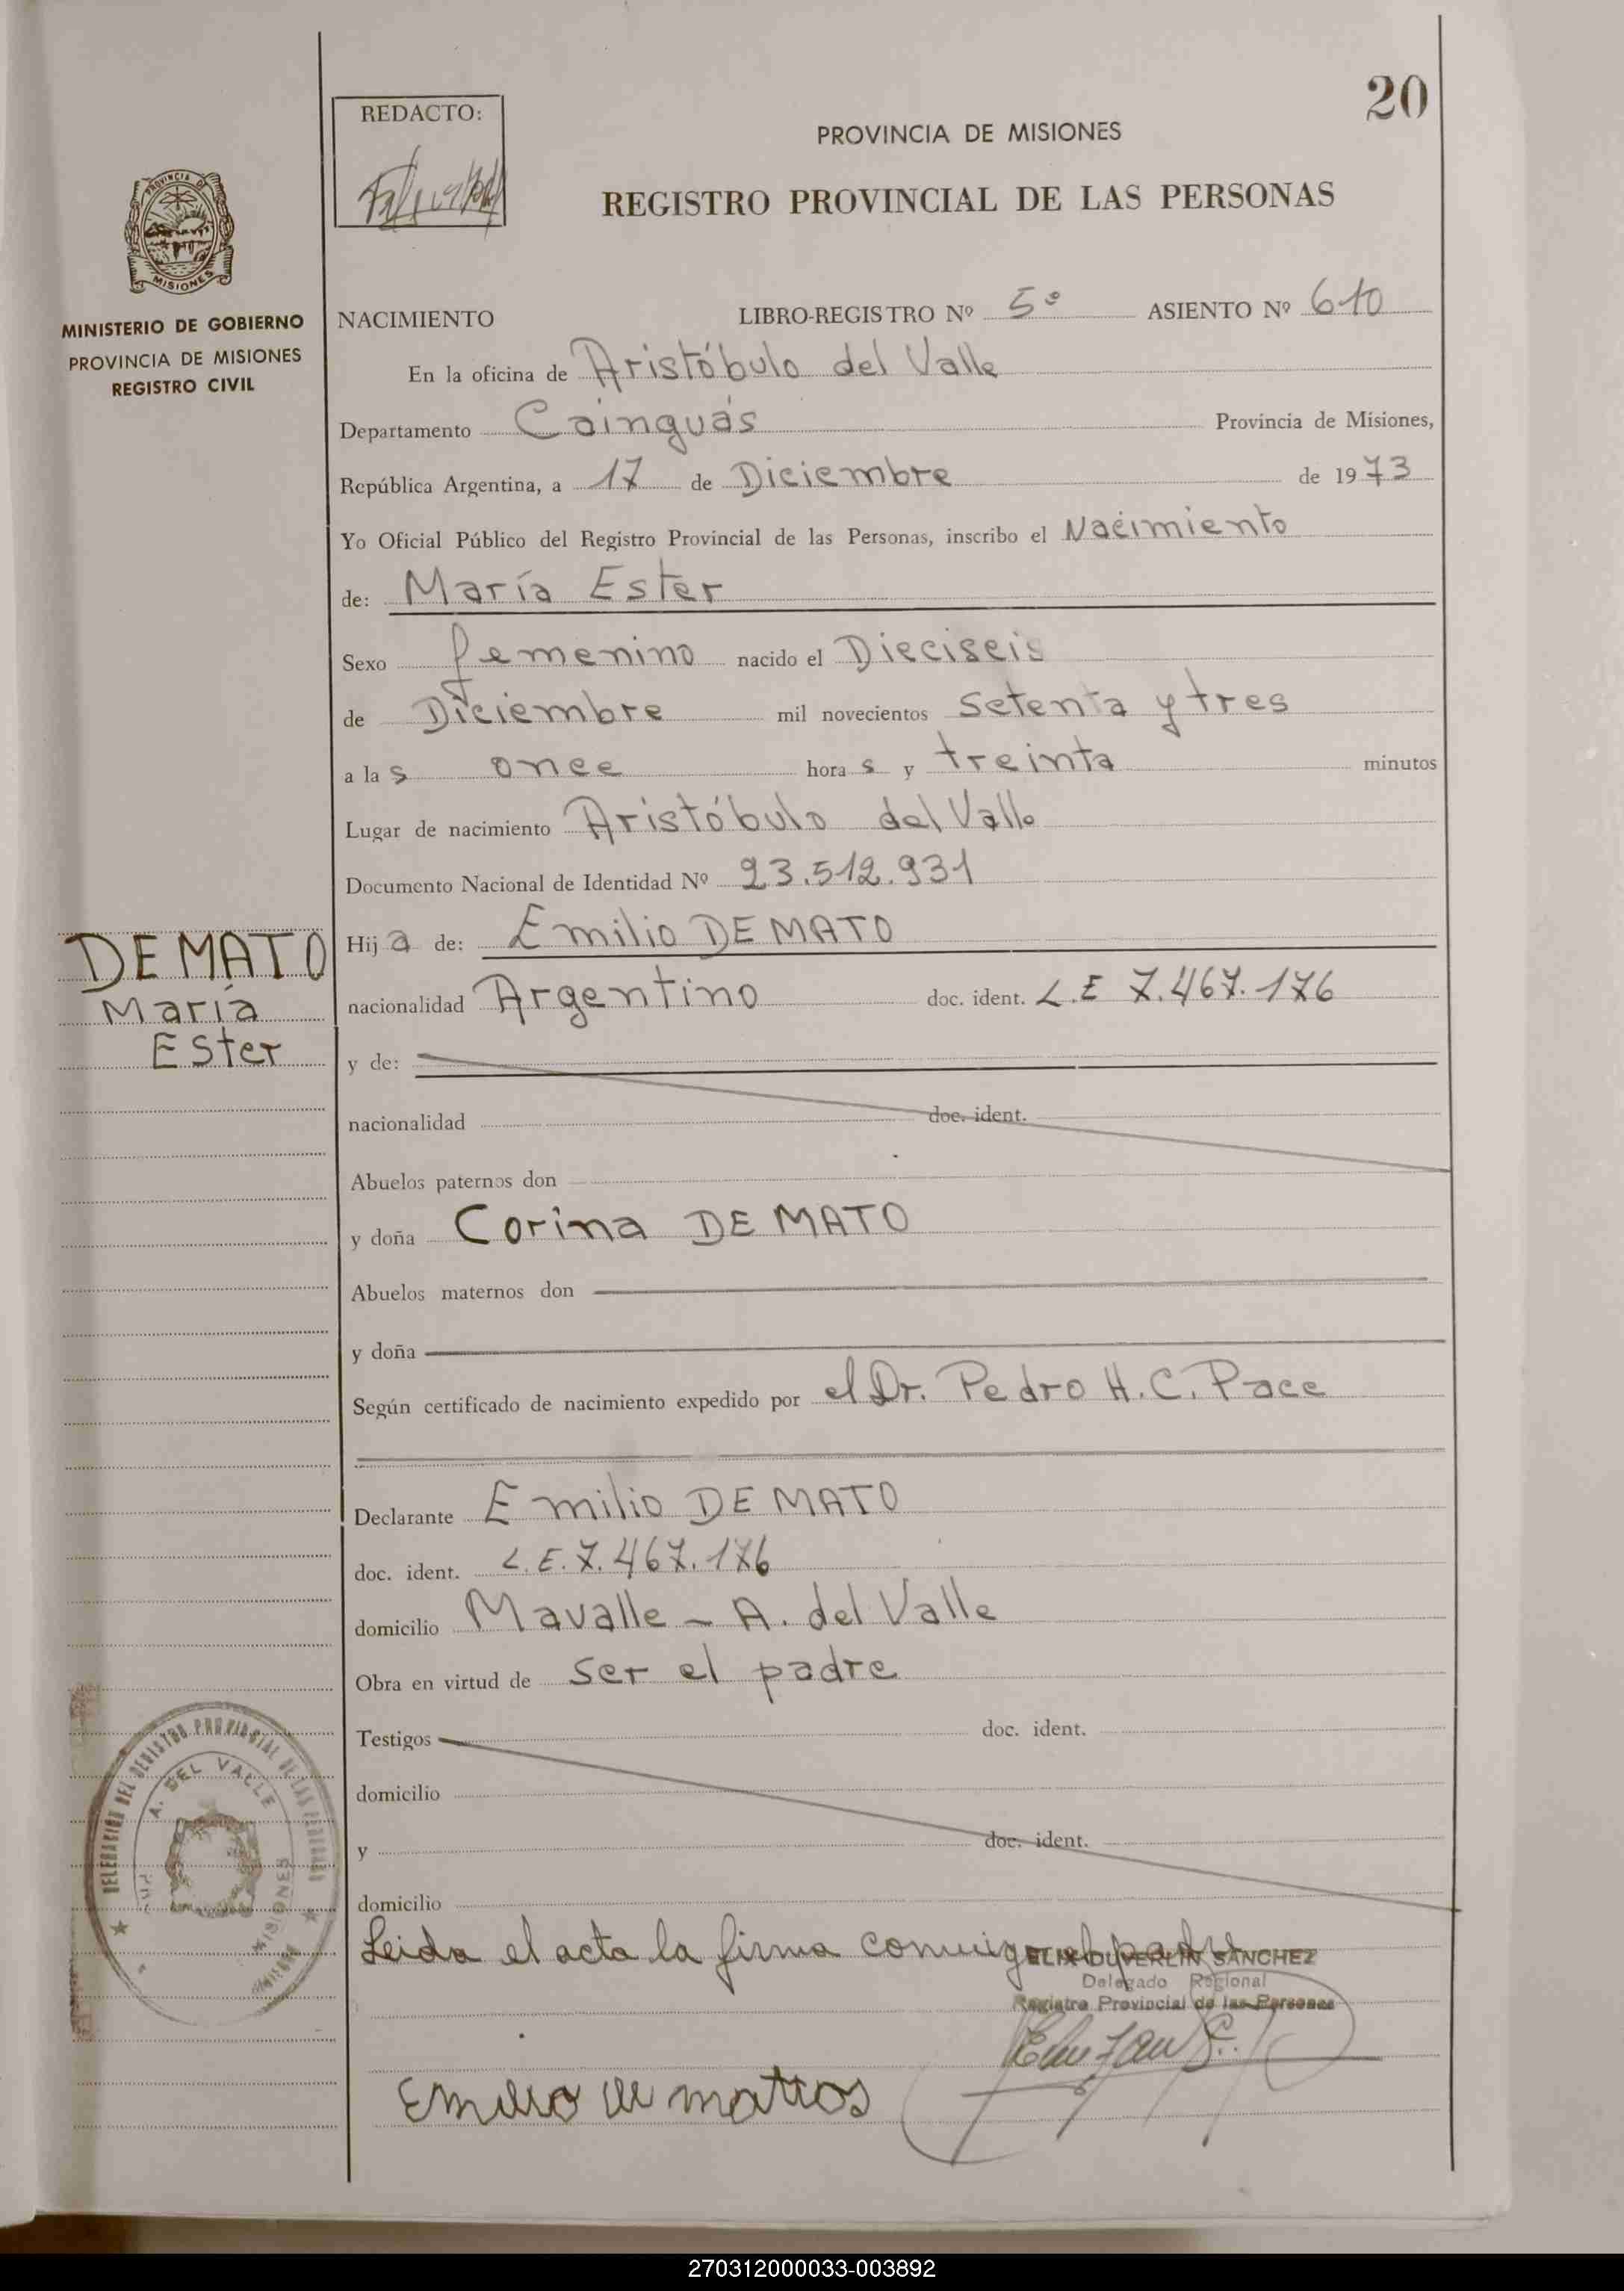 20
REDACTO:
PROVINCIA DE MISIONES
REGISTRO PROVINCIAL DE LAS PERSONAS
PROVINCIA DE
MISIONES
MINISTERIO DE GOBIERNO
PROVINCIA DE MISIONES
REGISTRO CIVIL
NACIMIENTO LIBRO-REGISTRO Nº 5º ASIENTO Nº 610
En la oficina de Aristóbulo del Valle
Departamento Cainguás Provincia de Misiones,
República Argentina, a 17 de Diciembre de 1973
Yo Oficial Público del Registro Provincial de las Personas, inscribo el Nacimiento
de: María Ester
Sexo femenino nacido el Dieciseis
de Diciembre mil novecientos setenta y tres
a las once horas y treinta minutos
Lugar de nacimiento Aristóbulo del Valle
Documento Nacional de Identidad Nº 23.512.931
DE MATO
María
Ester
Hija de: Emilio DE MATO
nacionalidad Argentino doc. ident. L.E 7.467.176
y de:
nacionalidad doc. ident.
Abuelos paternos don
y doña Corina DE MATO
Abuelos maternos don
y doña
Según certificado de nacimiento expedido por el Dr. Pedro H. C. Pace
Declarante Emilio DE MATO
doc. ident. L.E. 7.467.176
domicilio Mavalle - A. del Valle
Obra en virtud de ser el padre
Testigos doc. ident.
domicilio
y doc. ident.
domicilio
DELEGACION DEL REGISTRO PROVINCIAL DE LAS PERSONAS
A. DEL VALLE
MISIONES
Leida el acta la firma conmigo el padre
ELIX DUVERLIN SANCHEZ
Delegado Regional
Registro Provincial de las Personas
Emilio de mattos
270312000033-003892